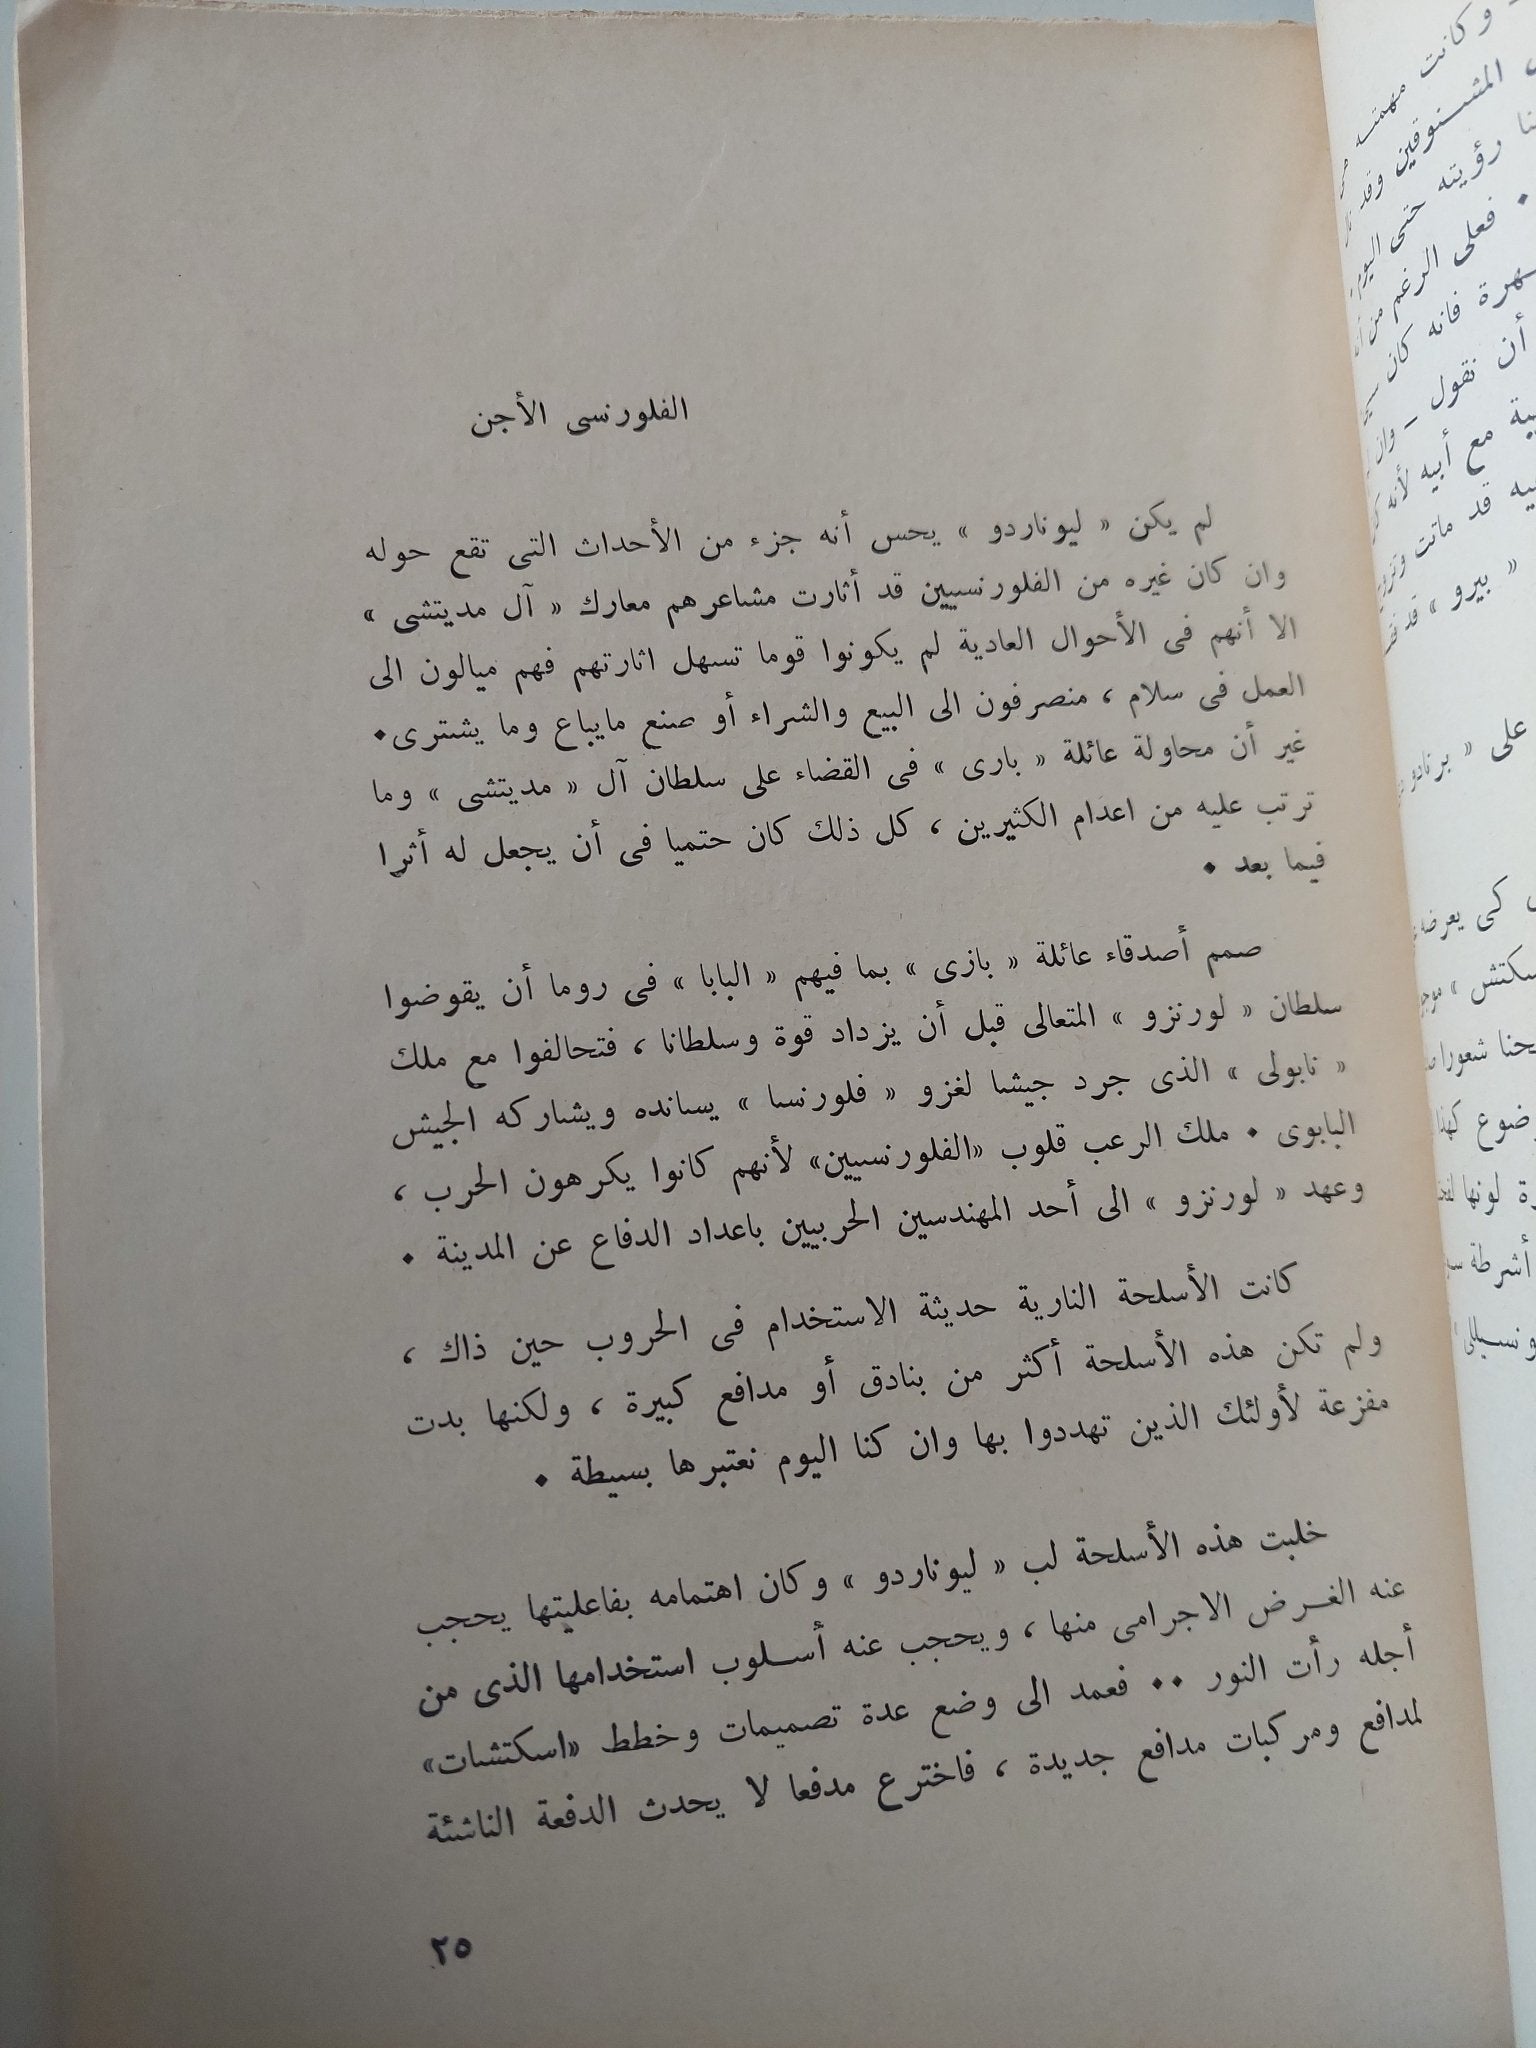 الفلورنسى الأجن
لم يكن « ليوناردو » يحس أنه جزء من الأحداث التى تقع حوله
وان كان غيره من الفلورنسيين قد أثارت مشاعرهم معارك « آل مديتشى »
الا أنهم فى الأحوال العادية لم يكونوا قوما تسهل اثارتهم فهم ميالون الى
العمل فى سلام ، منصرفون الى البيع والشراء أو صنع مايباع وما يشترى٠
غير أن محاولة عائلة « بارى » فى القضاء على سلطان آل « مديتشى » وما
ترتب عليه من اعدام الكثيرين ، كل ذلك كان حتميا فى أن يجعل له أثرا
فيما بعد ٠
صمم أصدقاء عائلة « بازى » بما فيهم « البابا » فى روما أن يقوضوا
سلطان « لورنزو » المتعالى قبل أن يزداد قوة وسلطانا ، فتحالفوا مع ملك
« نابولى » الذى جرد جيشا لغزو « فلورنسا » يسانده ويشاركه الجيش
البابوى ٠ ملك الرعب قلوب «الفلورنسيين» لأنهم كانوا يكرهون الحرب ،
وعهد « لورنزو » الى أحد المهندسين الحربيين باعداد الدفاع عن المدينة ٠
كانت الأسلحة النارية حديثة الاستخدام فى الحروب حين ذاك ،
ولم تكن هذه الأسلحة أكثر من بنادق أو مدافع كبيرة ، ولكنها بدت
مفزعة لأولئك الذين تهددوا بها وان كنا اليوم نعتبرها بسيطة ٠
خلبت هذه الأسلحة لب « ليوناردو » وكان اهتمامه بفاعليتها يحجب
عنه الغرض الاجرامى منها ، ويحجب عنه أسلوب استخدامها الذى من
أجله رأت النور ٠٠ فعمد الى وضع عدة تصميمات وخطط «اسكتشات»
لمدافع ومركبات مدافع جديدة ، فاخترع مدفعا لا يحدث الدفعة الناشئة
٢٥
وكانت مهمته
المشنوقين وقد
رؤيته حتى اليوم
٠ فعلى الرغم من
فانه كان
أن نقول – وان
مع أبيه لأنه
قد ماتت وتزوج
« بيرو » قد
على « برنادو
كى يعرضه
موجو
شعورا
كهذا
لونها
أشرطة